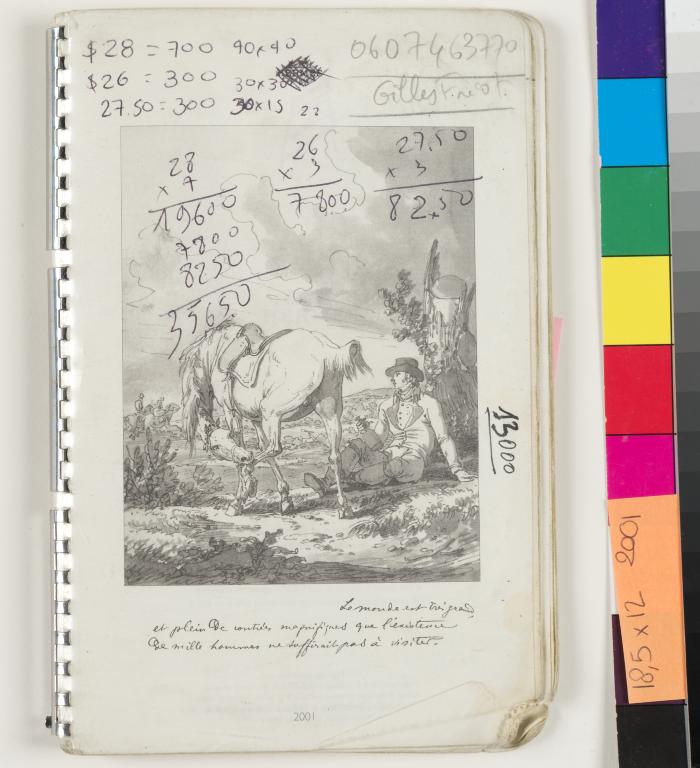 $28 = 700 40x40
$26 = 300 30x30
27.50 = 300 30x15 22
0607463770
28
x 7
19600
7800
8250
35650
26
x 3
7800
27,50
x 3
82,50
13000
Le monde est très grand
et plein de contrées magnifiques que l'existence
de mille hommes ne suffirait pas à visiter.
2001
18,5 x 12 2001